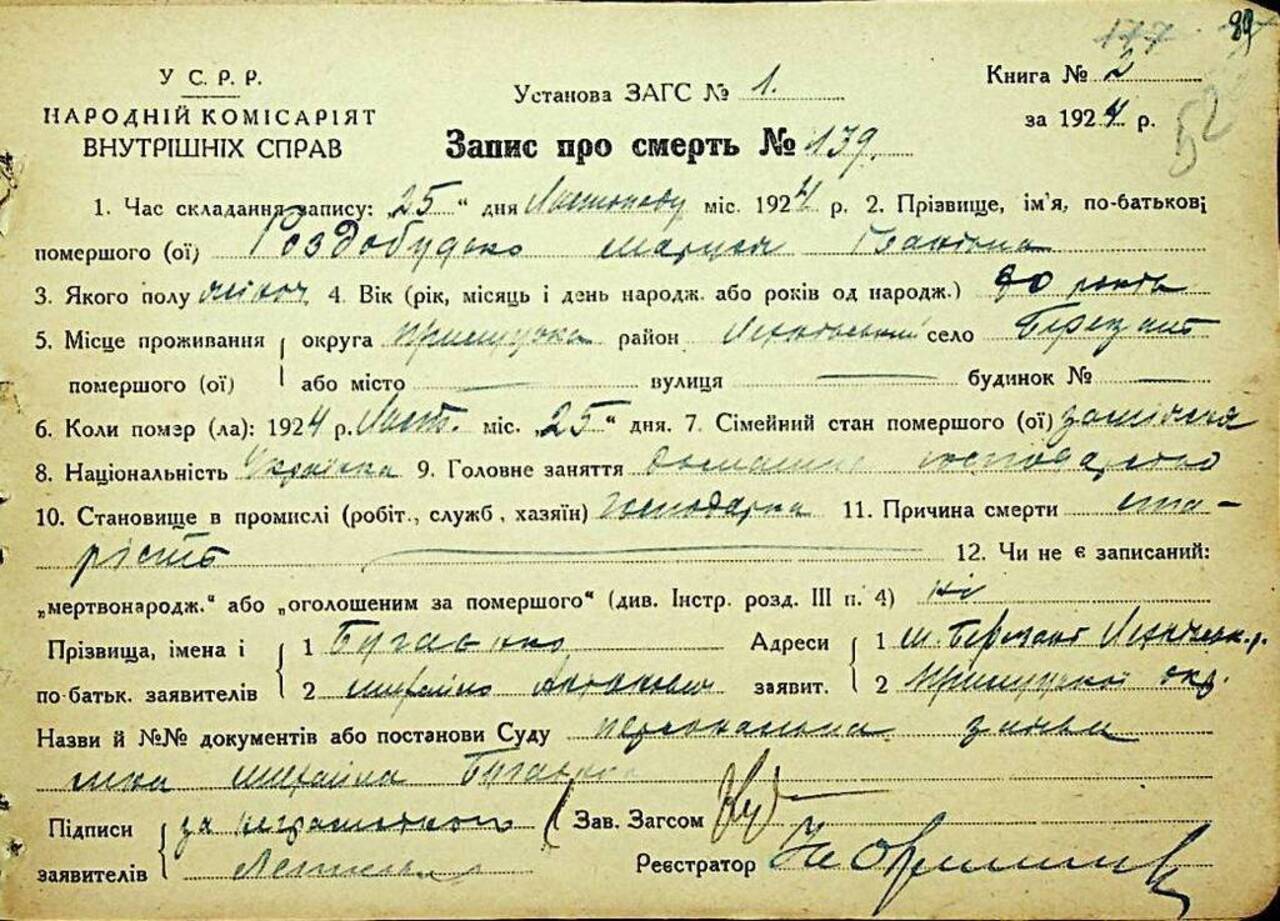 177 89
У С. Р. Р.
НАРОДНІЙ КОМІСАРІЯТ
ВНУТРІШНІХ СПРАВ
Установа ЗАГС № 1.
Книга № 2
за 1924 р.
52
Запис про смерть № 139.
1. Час складання запису: „25“ дня Листопаду міс. 1924 р. 2. Прізвище, ім'я, по-батькові
помершого (ої) Роздобудько Маруся Іванівна
3. Якого полу жіноч 4. Вік (рік, місяць і день народж. або років од народж.) 90 років
5. Місце проживання округа Прилуцька район село Березант
помершого (ої) або місто — вулиця — будинок № —
6. Коли помэр (ла): 1924 р. Лист. міс. „25“ дня. 7. Сімейний стан помершого (ої) заміжня
8. Національність Українка 9. Головне заняття домашнє господарство
10. Становище в промислі (робіт., служб., хазяїн) господарка 11. Причина смерти ста-
рість 12. Чи не є записаний:
„мертвонародж.“ або „оголошеним за помершого“ (див. Інстр. розд. III п. 4) ні
Прізвища, імена і 1 Адреси 1
по-батьк. заявителів 2 Михайло заявит. 2 Прилуцької окр.
Назви й №№ документів або постанови Суду персональна заява
Михайла
Підписи за неграмотного Зав. Загсом
заявителів Реєстратор